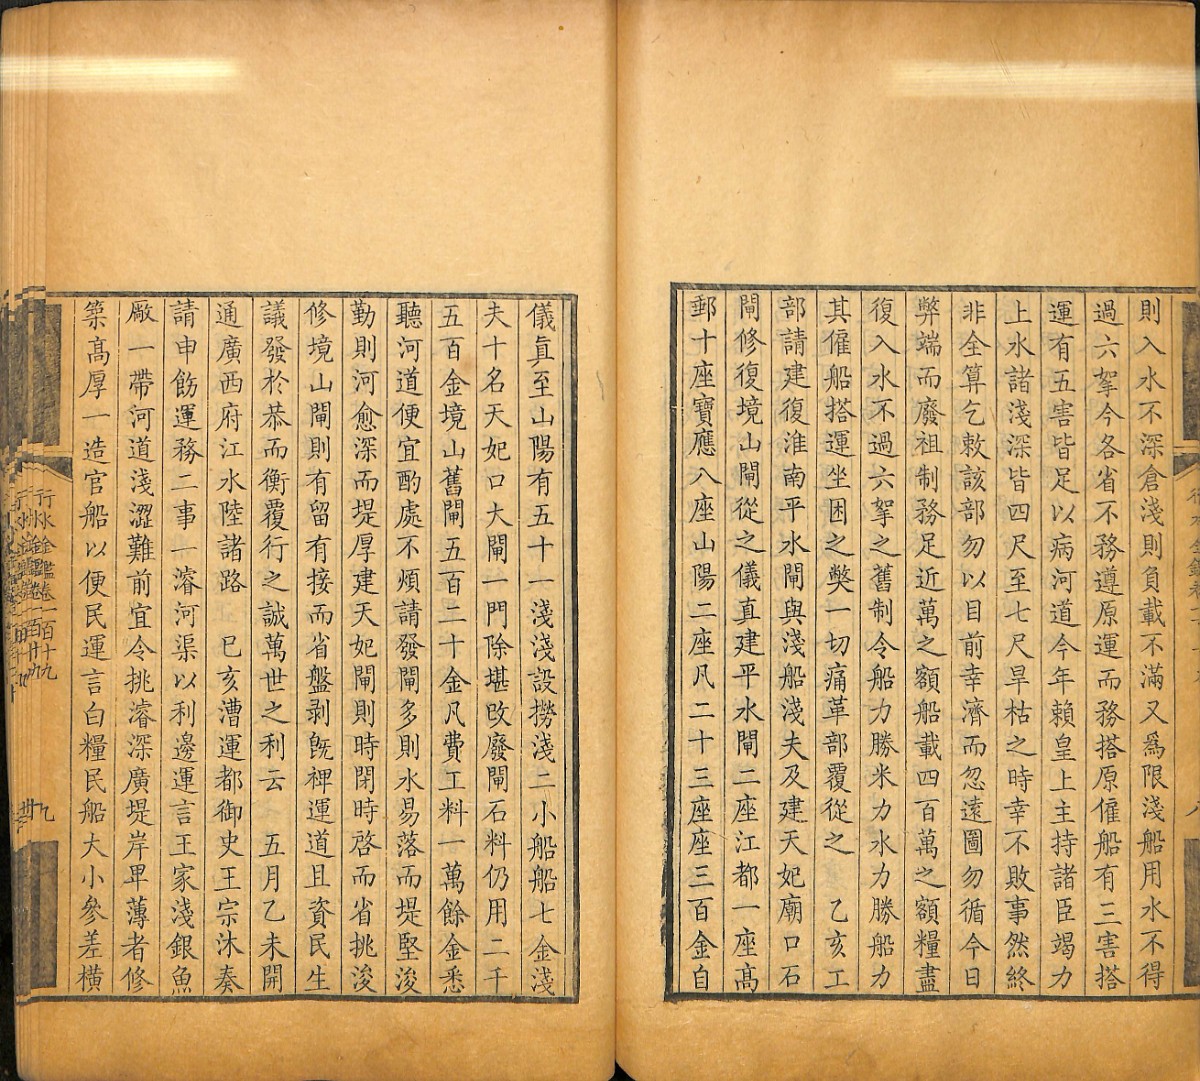 則入水不深倉淺則負載不滿又爲限淺船用水不得
過六挐今各省不務遵原運而務搭原僱船有三害搭
運有五害皆足以病河道今年賴皇上主持諸臣竭力
上水諸淺深皆四尺至七尺旱枯之時幸不敗事然終
非全算乞敕該部勿以目前幸濟而忽遠圖勿循今日
弊端而廢祖制務足近萬之額船載四百萬之額糧盡
復入水不過六挐之舊制令船力勝米力水力勝船力
其僱船搭運坐困之獘一切痛革部覆從之 乙亥工
部請建復淮南平水閘與淺船淺夫及建天妃廟口石
閘修復境山閘從之儀真建平水閘二座江都一座高
郵十座寶應八座山陽二座凡二十三座座三百金自
儀眞至山陽有五十一淺淺設撈淺二小船船七金淺
夫十名天妃口大閘一門除堪改廢閘石料仍用二千
五百金境山舊閘五百二十金凡費工料一萬餘金悉
聽河道便宜酌處不煩請發閘多則水易落而堤堅浚
勤則河愈深而堤厚建天妃閘則時閉時啓而省挑浚
修境山閘則有留有接而省盤剥旣裨運道且資民生
議發於恭而衡覆行之誠萬世之利云 五月乙未開
通廣西府江水陸諸路 巳亥漕運都御史王宗沐奏
請申飭運務二事一濬河渠以利邊運言王家淺銀魚
廠一帶河道淺澀難前宜令挑濬深廣堤岸卑薄者修
築高厚一造官船以便民運言白糧民船大小參差橫
行水金鑑卷一百十九
九